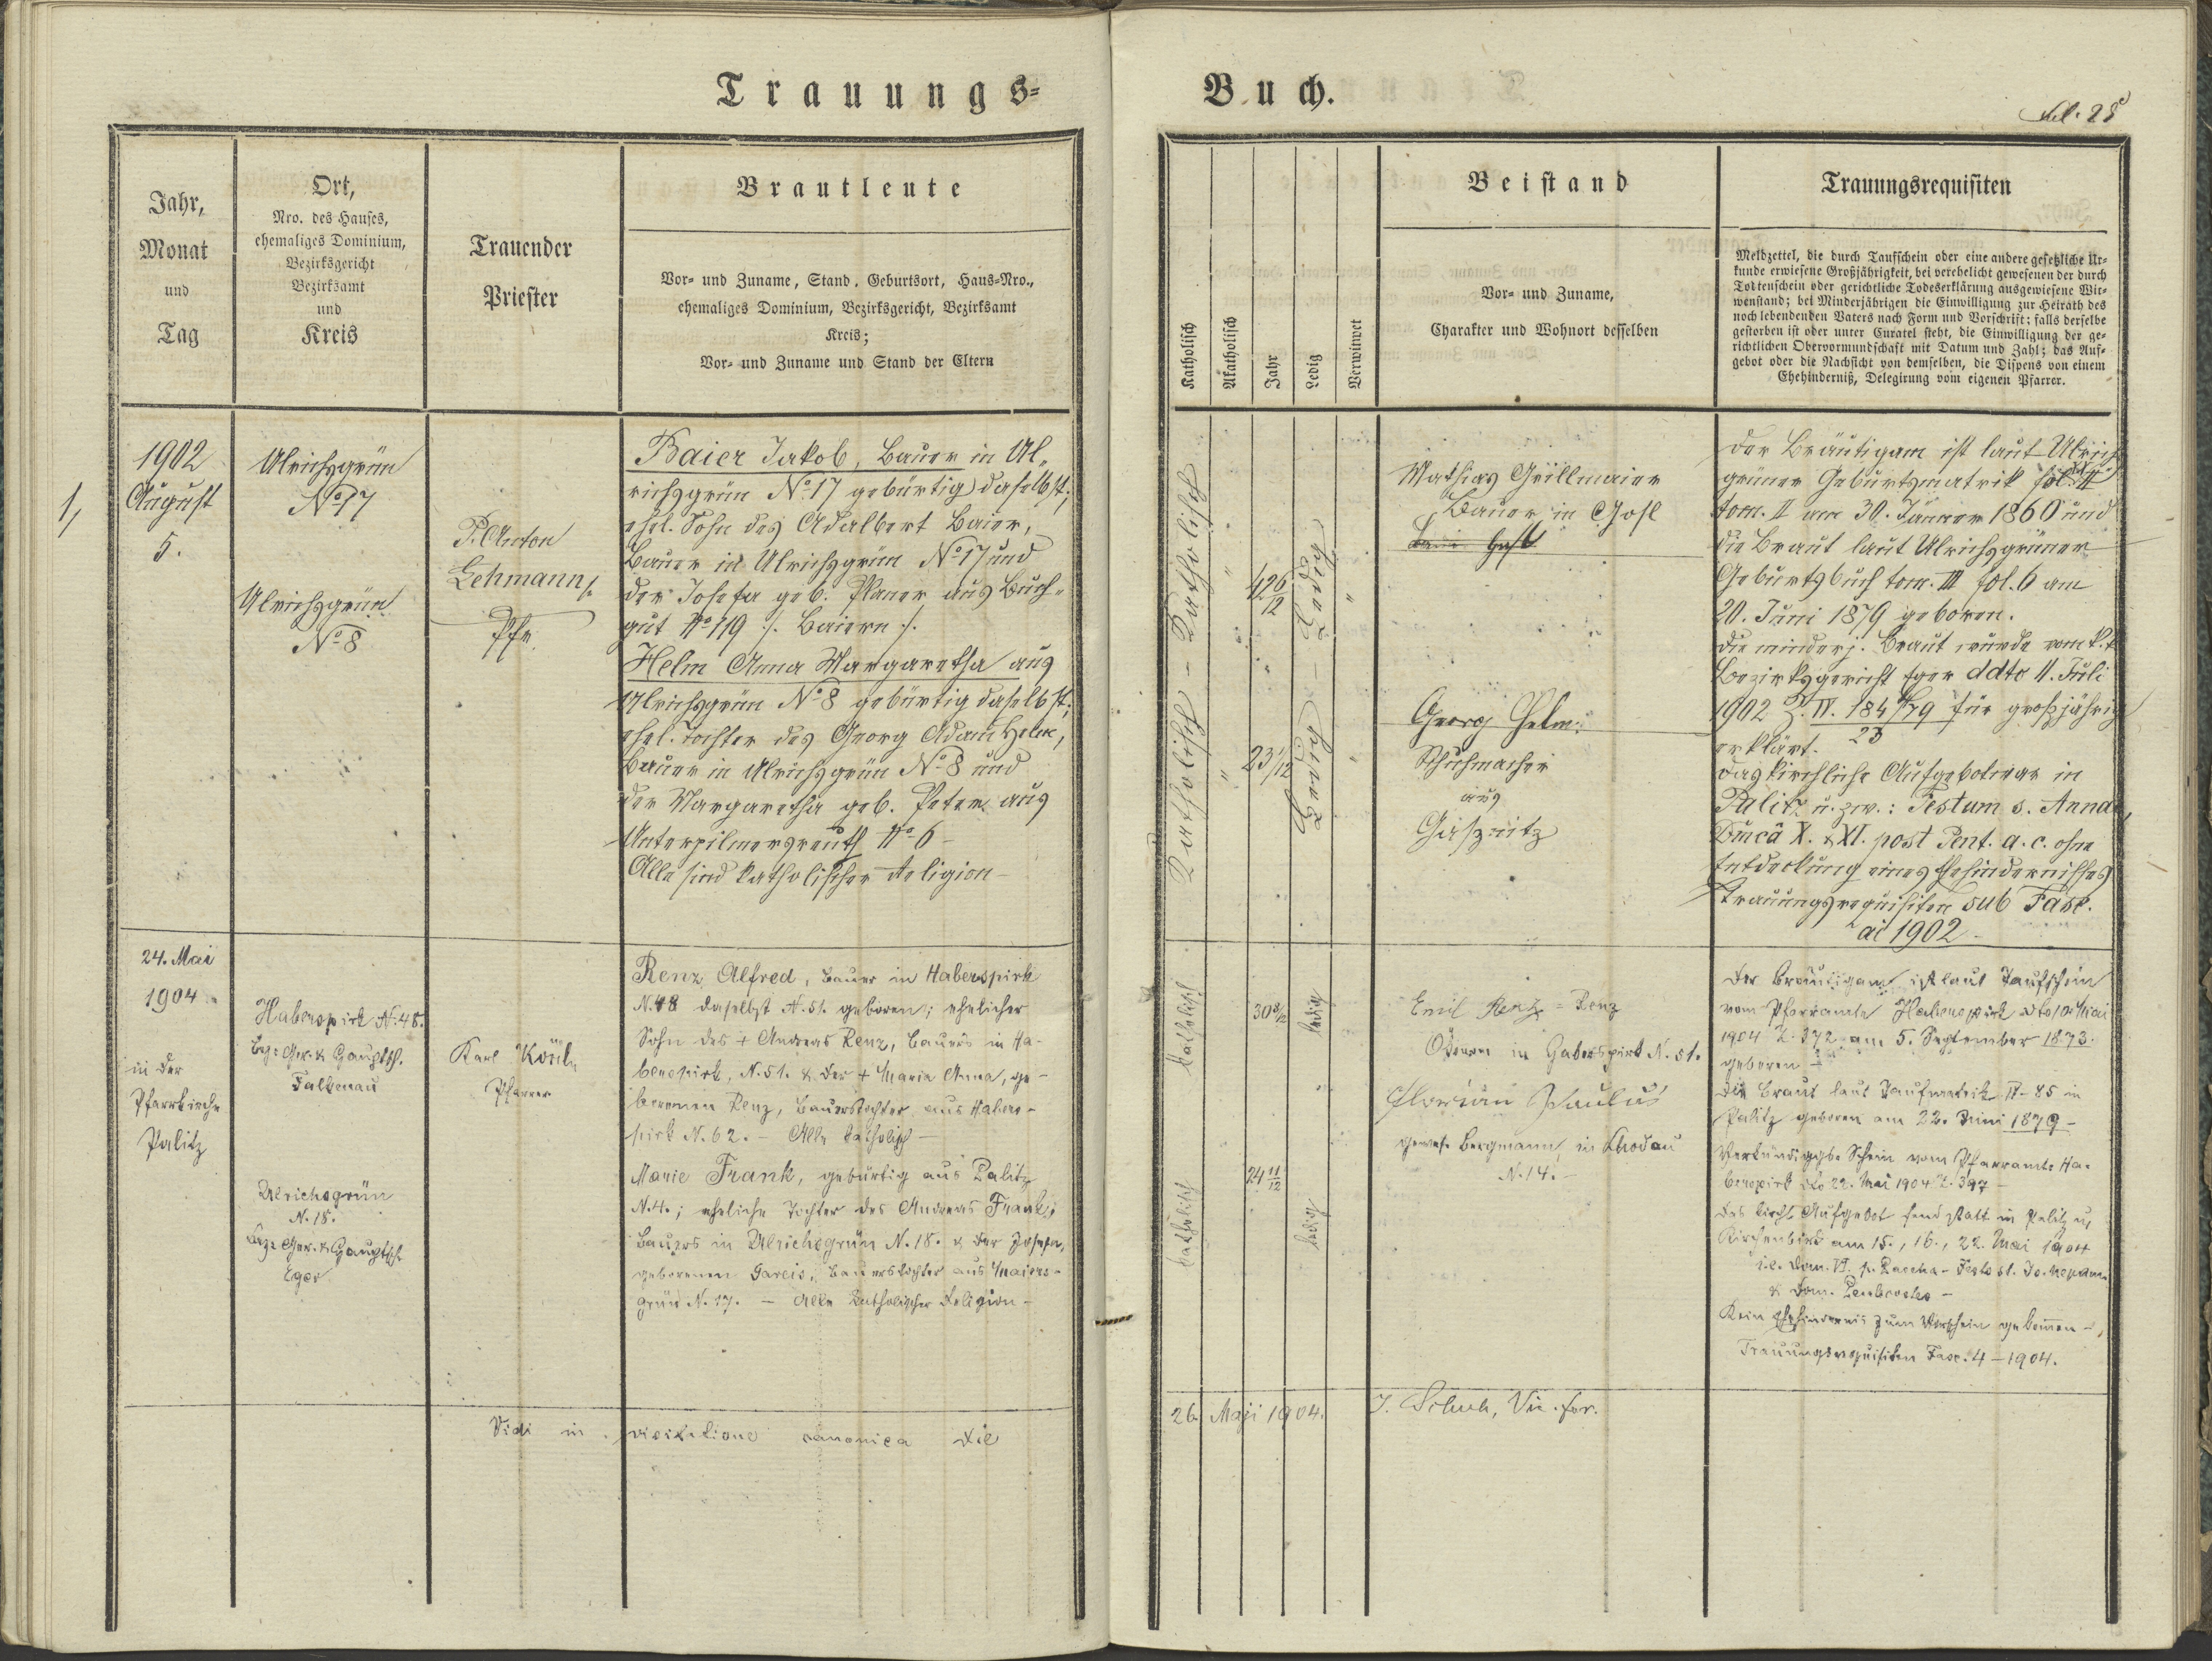 Trauungs=
Buch.
fol. 28
Jahr,
Monat
und
Tag
Ort,
Nro. des Hauses,
ehemaliges Dominium,
Bezirksgericht
Bezirksamt
und
Kreis
Trauender
Priester
Brautleute
Vor= und Zuname, Stand, Geburtsort, Haus=Nro.,
ehemaliges Dominium, Bezirksgericht, Bezirksamt
Kreis;
Vor= und Zuname und Stand der Eltern
Katholisch
Akatholisch
Jahr
Ledig
Verwitwet
Beistand
Vor= und Zuname,
Charakter und Wohnort desselben
Trauungsrequisiten
Meldzettel, die durch Taufschein oder eine andere gesetzliche Ur=
kunde erwiesene Großjährigkeit, bei verehelicht gewesenen der durch
Todtenschein oder gerichtliche Todeserklärung ausgewiesene Wit=
wenstand; bei Minderjährigen die Einwilligung zur Heirath des
noch lebendenden Vaters nach Form und Vorschrift; falls derselbe
gestorben ist oder unter Curatel steht, die Einwilligung der ge=
richtlichen Obervormundschaft mit Datum und Zahl; das Auf=
gebot oder die Nachsicht von demselben, die Dispens von einem
Ehehinderniß, Delegirung vom eigenen Pfarrer.
1,
1902
August
5.
Ulrichsgrün
No 17
Ulrichsgrün
No 8
P. Anton
Lehmann
Pfr.
Baier Jakob, Bauer in Ul„
richsgrün No 17 gebürtig daselbst;
ehel. Sohn des Adalbert Baier,
Bauer in Ulrichsgrün No 17 und
der Josefa geb. Planer aus Buch„
gut No 119 /. Baiern ./.
Helm Anna Margaretha aus
Ulrichsgrün No 8 gebürtig daselbst;
ehel. Tochter des Georg Adam Helm,
Bauer in Ulrichsgrün No 8 und
der Margaretha geb. Peter aus
Unterpilmersreuth No 6 –
Alle sind katholischer Religion –
Katholisch – Katholisch
42 6/12
23 1/12
Ledig – Ledig
Mathias Grillmaier
Bauer in Gosl
Georg Helm:
Schuhmacher
aus
Gaßnitz
Der Bräutigam ist laut Ulrichs
grüner Geburtsmatrik fol.
tom. II am 30. Jänner 1860 und
die Braut laut Ulrichsgrüner
Geburtsbuch tom. III fol. 6 am
20. Juni 1879 geboren.
Die minderj. Braut wurde vom k. k.
Bezirksgericht Eger ddto 11. Juli
1902 Z. IV. 184/79 für großjährig
23
erklärt.
Das kirchliche Aufgebot war in
Palitz u. zw.: Festum s. Annae,
Dmca X. & XI. post Pent. a. c. ohne
Entdeckung eines Ehehindernisses
Trauungsrequisiten sub Fasc.
ai 1902 –
24. Mai
1904
in der
Pfarrkirche
Palitz
Haberspirk N. 48.
Bez. Ger. & Hauptsch.
Falkenau
Ulrichsgrün
N. 18.
Bez. Ger. & Hauptsch.
Eger
Karl
Pfarrer
Renz Alfred, Bauer in Haberspirk
N. 48 daselbst N. 51. geboren; ehelicher
Sohn des + Andreas Renz, Bauers in Ha-
berspirk, N. 51. & der + Maria Anna, ge-
borenen Renz, Bauerstochter aus Habers-
pirk N. 62. – Alle katholisch –
Marie Frank, gebürtig aus Palitz
N. 4.; eheliche Tochter des Andreas Frank,
Bauers in Ulrichsgrün N. 18. & der Josefa,
geborenen Gareis, Bauerstochter aus Maiers-
grün N. 17. – Alle katholischer Religion –
katholisch
30 8/12
ledig
katholisch
24 11/12
ledig
Emil Renz = Renz
in Haberspirk N. 51.
Florian Paulus
gewes. Bergmann in Chodau
N. 14. –
Der Bräutigam ist laut Taufschein
vom Pfarramte Haberspirk dto 10 Mai
1904 Z. 372 am 5. September 1873.
geboren –
Die Braut laut Taufmatrik IV – 85 in
Palitz geboren am 22. Juni 1879 –
Verkündiggs. Schein vom Pfarramte Ha-
berspirk dto 22. Mai 1904 Z. 397 –
Das kirchl. Aufgebot fand statt in Palitz u.
Kirchenbirk am 15., 16., 22. Mai 1904
i. e. Dom. VI. p. Pascha – Festo st. Jo. Nepom.
& Dom. Pentecostes –
Kein Ehehindernis zum Vorschein gekommen –,
Trauungsrequisiten Fasc. 4 – 1904.
Vidi in visitatione canonica die
26. Maji 1904.
J. Schuh, Vic. for.